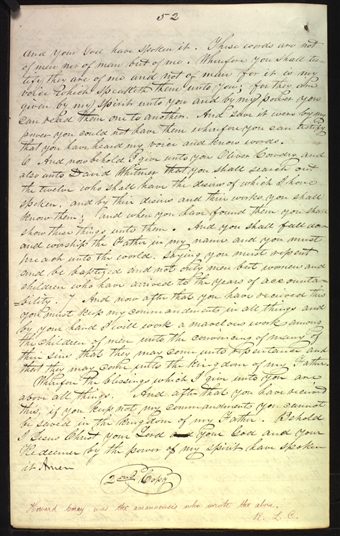 52
and your God have spoken it. These words are not
of men nor of man but of me. Wherefore you shall tes-
tify they are of me and not of man for it is my
voice which speaketh them unto you; for they are
given by my spirit unto you and by my power you
can read them one to another. And save it were by my
power you could not have them wherefore you can testify
that you have heard my voice and know my words.
6 And now behold I give unto you Oliver Cowdery and
also unto David Whitmer that you shall search out
the twelve who shall have the desires of which I have
spoken, and by their desires and their works you shall
know them; and when you have found them you shall
show these things unto them. And you shall fall down
and worship the Father in my name and you must
preach unto the world, saying you must repent
and be baptized and not only men but women and
children who have arrived to the years of accounta-
bility. 7 And now after that you have received this
you must keep my commandments in all things and
by your hand I will work a marvelous work among
the children of men unto the convincing of many of
their sins that they may come unto repentance and
that they may come unto the kingdom of my Father.
Wherefor the blessings which I give unto you are
above all things. And after that you have received
this, if you keep not my commandments you cannot
be saved in the kingdom of my Father. Behold
I Jesus Christ your Lord and your God and your
Redeemer by the power of my spirit have spoken
it Amen
2nd Copy
Howard Coray was the amanuensis who wrote the above.
R. L. C.